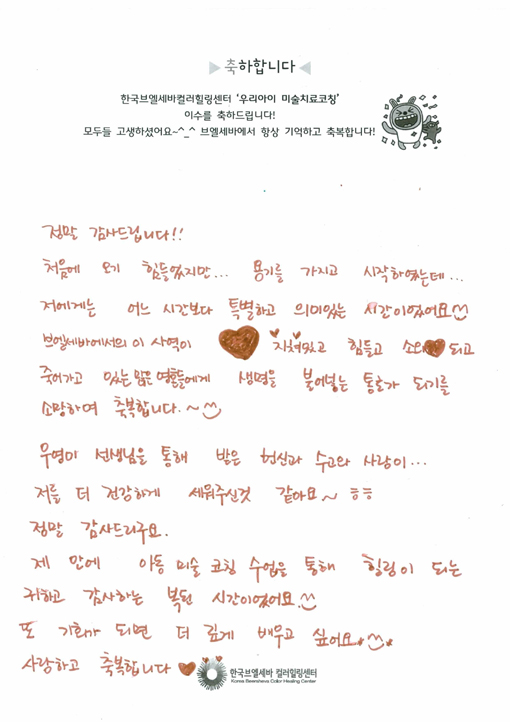 축하합니다
한국브엘세바컬러힐링센터 '우리아이 미술치료코칭'
이수를 축하드립니다!
모두들 고생하셨어요~^_^ 브엘세바에서 항상 기억하고 축복합니다!
정말 감사드립니다!!
처음에 오기 힘들었지만... 용기를 가지고 시작하였는데...
저에게는 어느 시간보다 특별하고 의미있는 시간이었어요
브엘세바에서의 이 사역이 지쳐있고 힘들고 소외 되고
죽어가고 있는 많은 영혼들에게 생명을 불어넣는 통로가 되기를
소망하며 축복합니다.~
무엇이 선생님을 통해 받은 헌신과 수고와 사랑이...
저를 더 건강하게 세워주신것 같아요~ ㅎㅎ
정말 감사드리구요.
제 안에 아동 미술 코칭 수업을 통해 힐링이 되는
귀하고 감사하는 복된 시간이었어요.
또 기회가 되면 더 깊게 배우고 싶어요.
사랑하고 축복합니다
한국브엘세바 컬러힐링센터
Korea Beersheva Color Healing Center